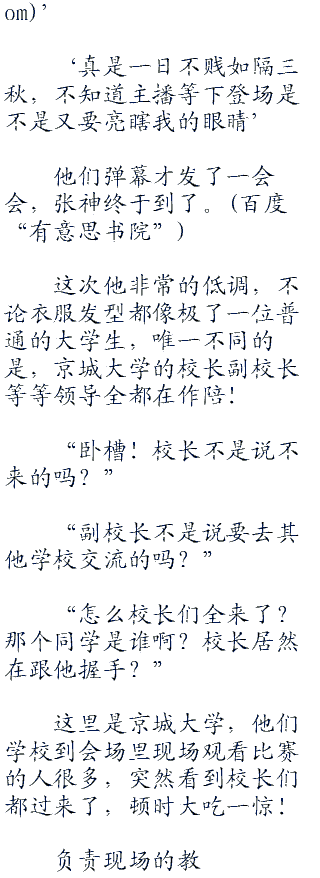 om)’
‘真是一日不贱如隔三
秋，不知道主播等下登场是
不是又要亮瞎我的眼睛’
他们弹幕才发了一会
会，张神终于到了。(百度
“有意思书院”)
这次他非常的低调，不
论衣服发型都像极了一位普
通的大学生，唯一不同的
是，京城大学的校长副校长
等等领导全都在作陪！
“卧槽！校长不是说不
来的吗？”
“副校长不是说要去其
他学校交流的吗？”
“怎么校长们全来了？
那个同学是谁啊？校长居然
在跟他握手？”
这里是京城大学，他们
学校到会场里现场观看比赛
的人很多，突然看到校长们
都过来了，顿时大吃一惊！
负责现场的教